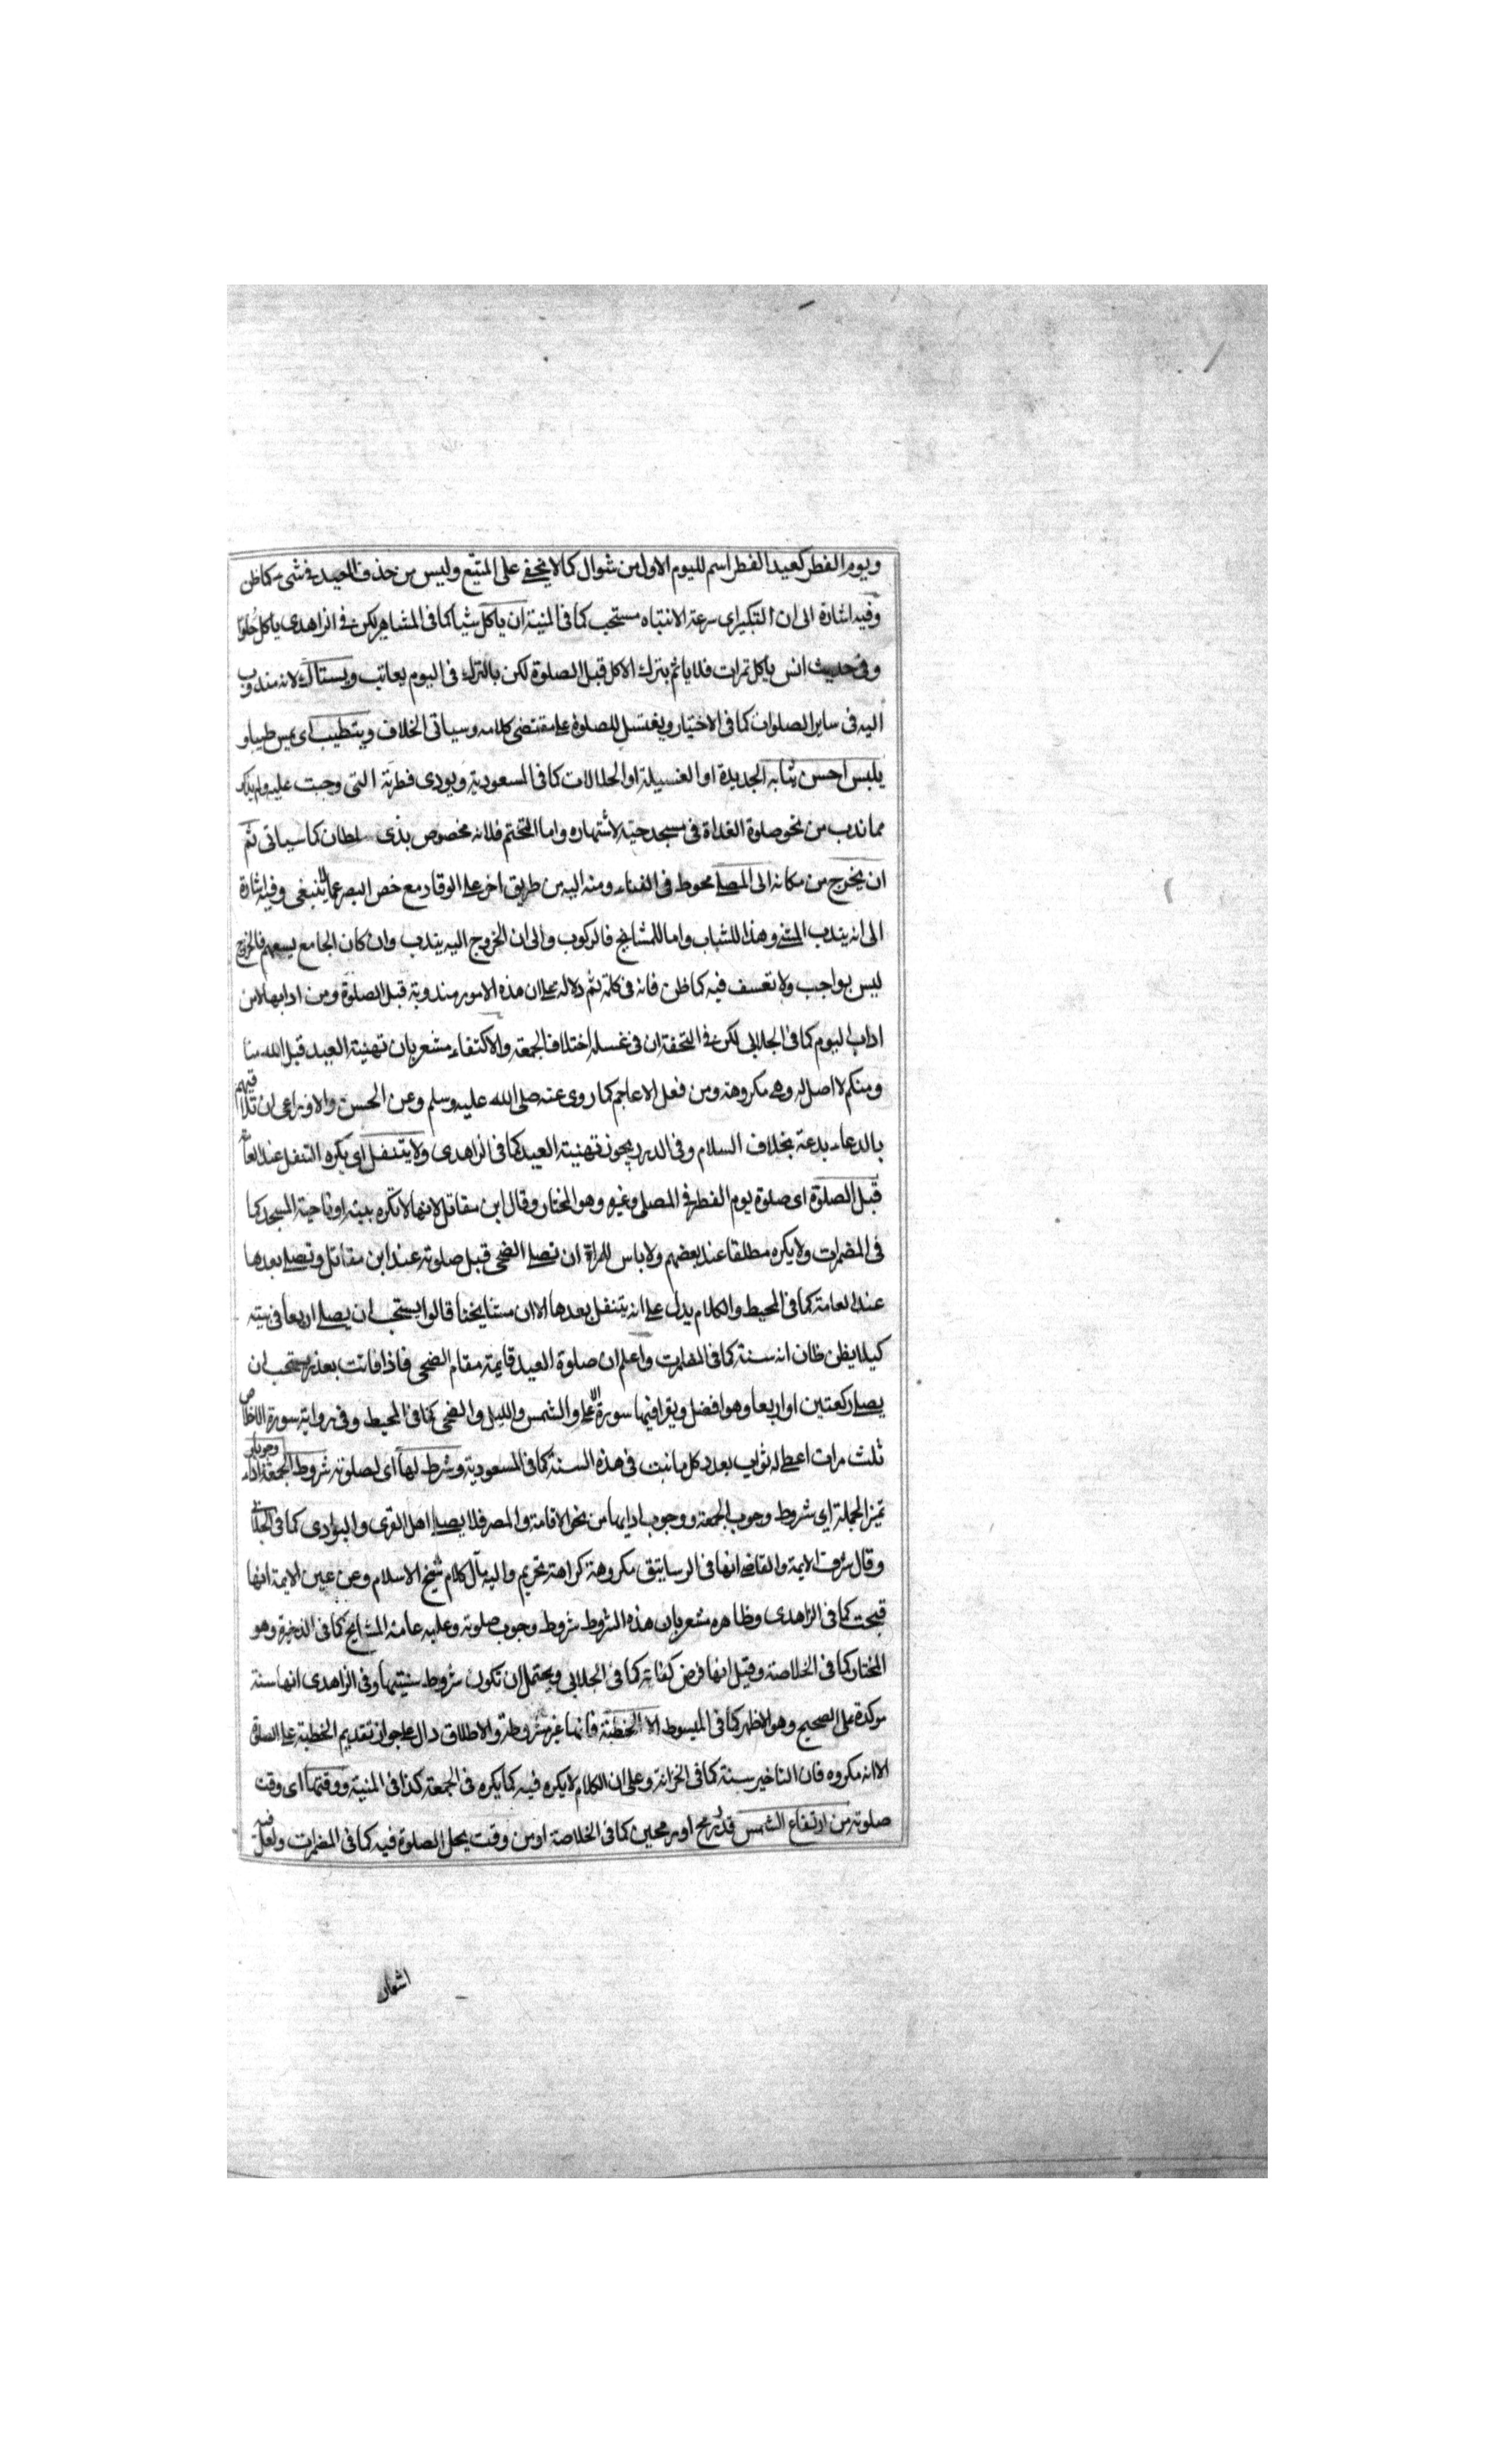 ويوم الفطر كعيد الفطر اسم لليوم الاول من شوال كما لا يخفى على المتتبع وليس من حذف العيد فى شىء كما ظن
وفيه اشارة الى ان التبكير اى سرعة الانتباه مستحب كما فى المنية ان ياكل شيا كما فى المشاهير لكن فى الزاهدى ياكل حلوا
وفى حديث انس ياكل تمرات فلا ياثم بترك الاكل قبل الصلوة لكن بالترك فى اليوم يعاتب ويستاك لانه مندوب
اليه فى ساير الصلوات كما فى الاختيار ويغتسل للصلوة على مقتضى كلامه وسياتى الخلاف ويتطيب اى يمس طيبا و
يلبس احسن ثيابه الجديدة او الغسيلة او الحلالات كما فى المسعودية ويودى فطرته التى وجبت عليه ولم يذكر
مما ندب من نحو صلوة الغداة فى مسجد حيه لاشتهاره واما التختم فلانه مخصوص بذى سلطان كما سياتى ثم
ان يخرج من مكانه الى المصلى محوط فى الفناء ومنه اليه من طريق اخر على الوقار مع غض البصر عما لا ينبغى وفيه اشارة
الى انه يندب المشى وهذا للشباب واما للمشايخ فالركوب والى ان الخروج اليه يندب وان كان الجامع يسعهم فالخروج
ليس بواجب ولا تعسف فيه كما ظن فانه فى كلمة ثم دلالة على ان هذه الامور مندوبة قبل الصلوة ومن ادابها لا من
اداب اليوم كما فى الجلابى لكن فى التحفة ان فى غسله اختلاف الجمعة والاكتفاء مشعر بان تهنية العيد قبل الله منا
ومنكم لا اصل له وهى مكروهة ومن فعل الاعاجم كما روى عنه صلى الله عليه وسلم وعن الحسن والاوزاعى ان تلاقيهم
بالدعاء بدعة بخلاف السلام وفى الدرر يجوز تهنية العيد كما فى الزاهدى ولا يتنفل اى يكره التنفل عند العامة
قبل الصلوة اى صلوة يوم الفطر فى المصلى وغيره وهو المختار وقال ابن مقاتل لانها لا تكره ببيته او ناحية المسجد كما
فى المضمرات ولا يكره مطلقا عند بعضهم ولا باس للمراة ان تصلى الضحى قبل صلوته عند ابن مقاتل وتصلى بعدها
عند العامة كما فى المحيط والكلام يدل على انه يتنفل بعدها الا ان مشايخنا قالوا يستحب ان يصلى اربعا فى بيته
كيلا يظن ظان انه سنة كما فى المضمرات واعلم ان صلوة العيد قايمة مقام الضحى فاذا فاتت بعذر يستحب ان
يصلى ركعتين او اربعا وهو افضل ويقرا فيها سورة الاعلى والشمس والليل والضحى كما فى المحيط وفى رواية سورة الاخلاص
ثلث مرات اعطى له ثواب بعدد كل ما نبت فى هذه السنة كما فى المسعودية وشرط لها اى لصلوته شروط الجمعة وجوبا واداء
تميز الجملة اى شروط وجوب الجمعة ووجوب ادايها من نحو الاقامة والمصر فلا يصلى اهل القرى والبوادى كما فى الجلابى
وقال شرف الايمة والقاضى انها فى الرساتيق مكروهة كراهة تحريم واليه مآل كلام شيخ الاسلام وعن عين الايمة انها
قبحت كما فى الزاهدى وظاهره مشعر بان هذه الشروط شروط وجوب صلوته وعليه عامة المشايخ كما فى الذخيرة وهو
المختار كما فى الخلاصة وقيل انها فرض كفاية كما فى الجلابى ويحتمل ان تكون شروط سنيتها وفى الزاهدى انها سنة
موكدة على الصحيح وهو الاظهر كما فى المبسوط الا الخطبة فانها غير مشروطة والاطلاق دال على جواز تقديم الخطبة على الصلوة
الا انه مكروه فان التاخير سنة كما فى الخزانة وعلى ان الكلام لا يكره فيه كما يكره فى الجمعة كذا فى المنية ووقتها اى وقت
صلوته من ارتفاع الشمس قدر رمح او رمحين كما فى الخلاصة او من وقت يحل الصلوة فيه كما فى المضمرات ولعل فيه
اشعار